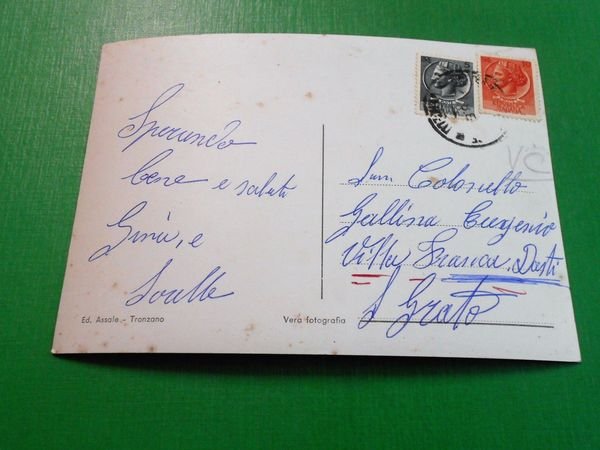 Sperando
bene e saluti
Gina, e
Fam. Colonello
Gallina Eugenio
Villa Franca. Dasti
S Grato
VC
Ed. Assale - Tronzano
Vera fotografia